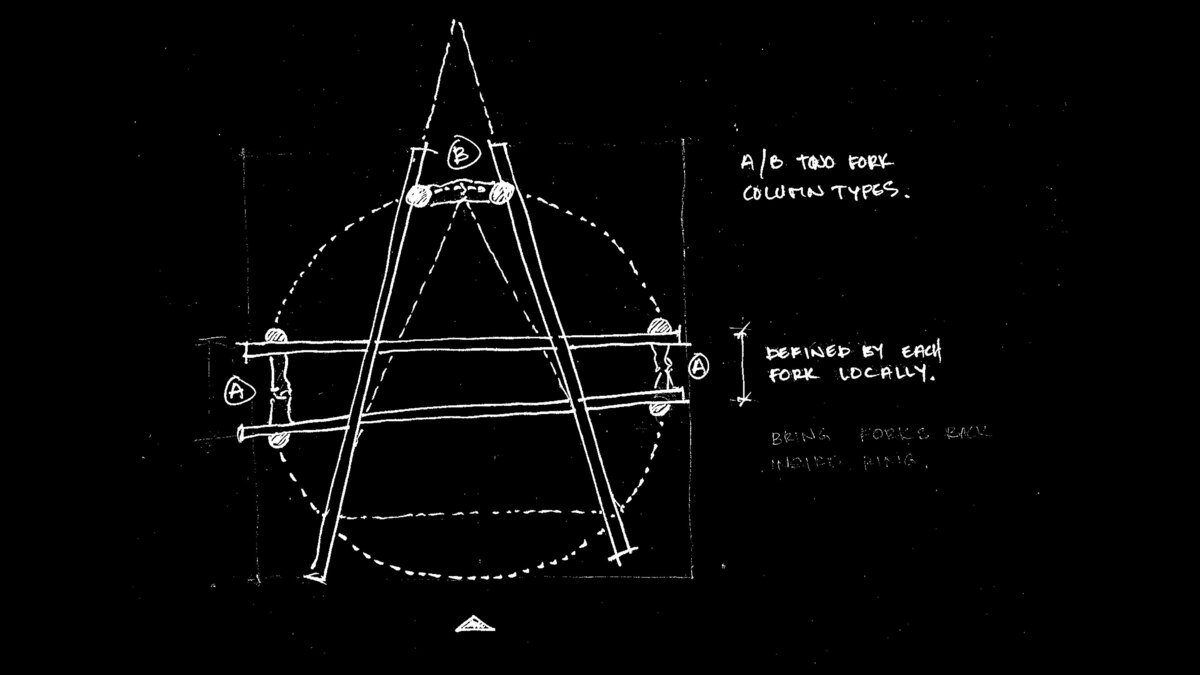 B
A/B TWO FORK
COLUMN TYPES.
A
A
DEFINED BY EACH
FORK LOCALLY.
BRING FORKS BACK
INSIDE RING.